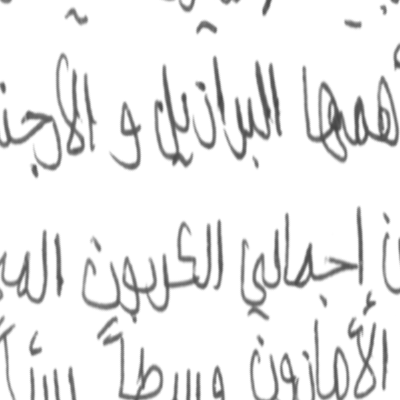 أهمها البرازيل و الأرجنـ
ن اجمالي الكربون المـ
الأمازون وسطاً